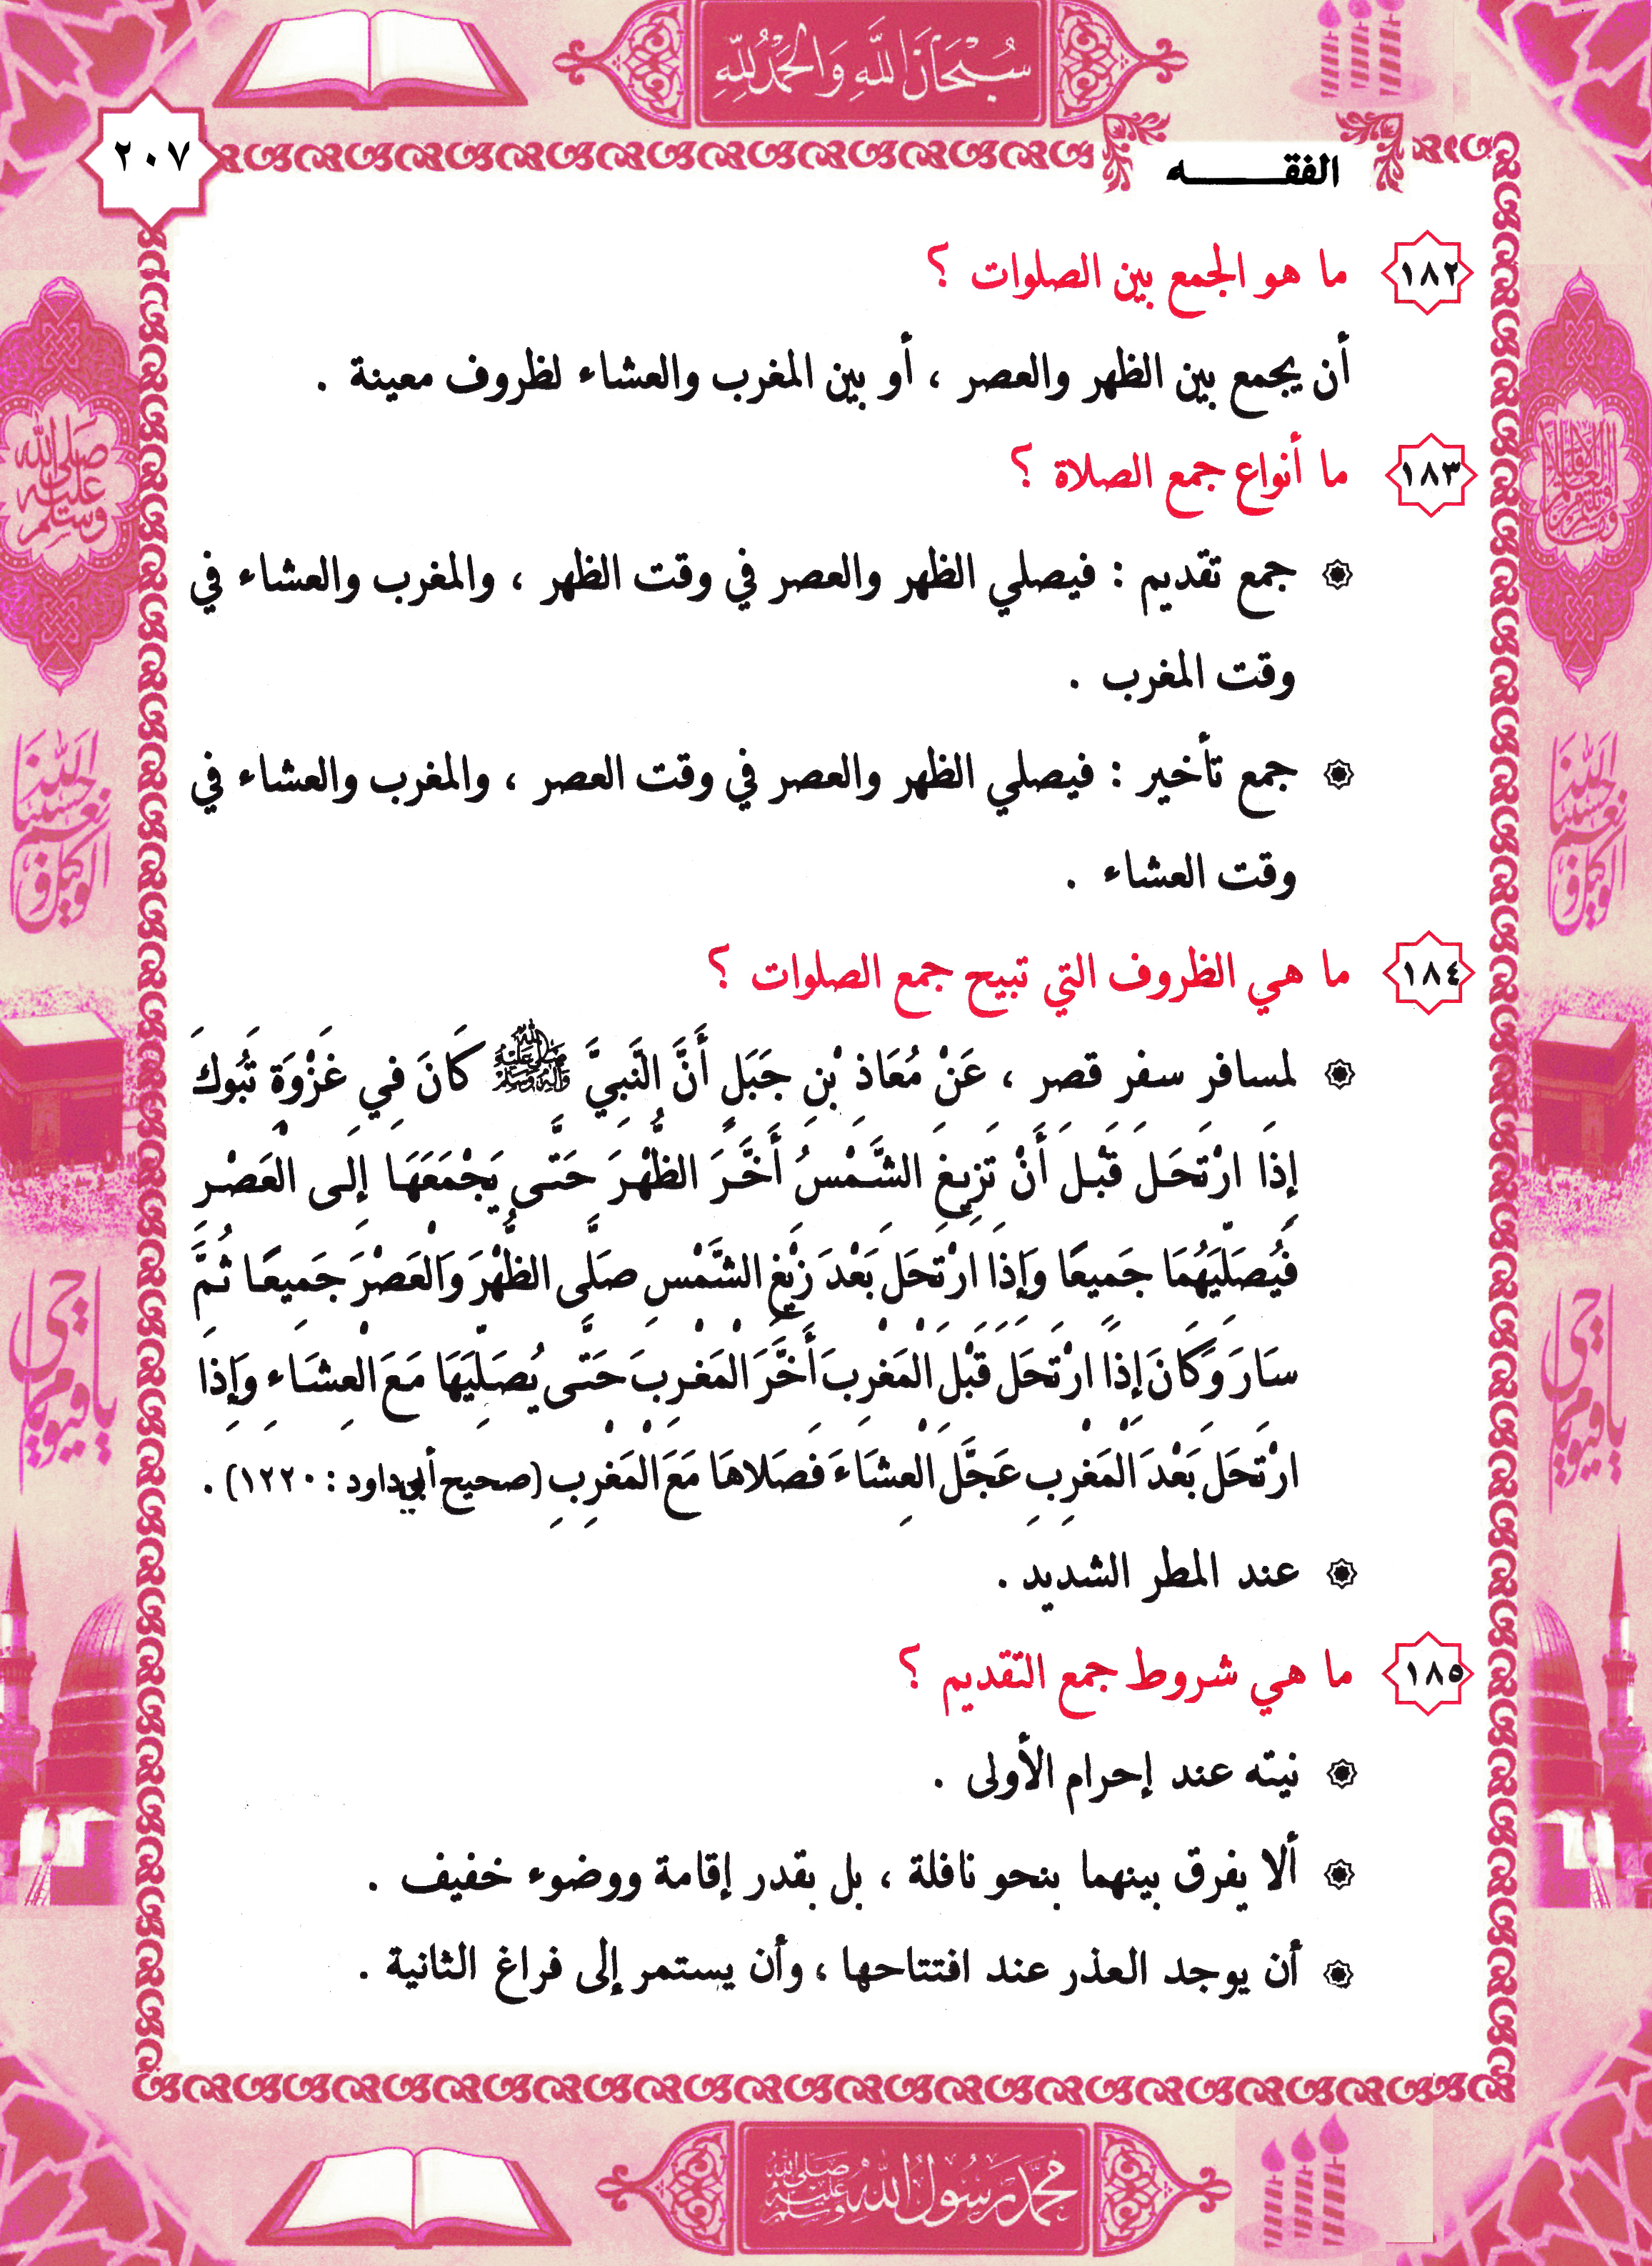 سُبْحَانَ اللَّهِ وَالْحَمْدُ لِلَّهِ
٢٠٧
الفقـــــه
١٨٢ ما هو الجمع بين الصلوات ؟
أن يجمع بين الظهر والعصر ، أو بين المغرب والعشاء لظروف معينة .
١٨٣ ما أنواع جمع الصلاة ؟
جمع تقديم : فيصلي الظهر والعصر في وقت الظهر ، والمغرب والعشاء في
وقت المغرب .
جمع تأخير : فيصلي الظهر والعصر في وقت العصر ، والمغرب والعشاء في
وقت العشاء .
١٨٤ ما هي الظروف التي تبيح جمع الصلوات ؟
لمسافر سفر قصر ، عَنْ مُعَاذِ بْنِ جَبَلٍ أَنَّ النَّبِيَّ ﷺ كَانَ فِي غَزْوَةِ تَبُوكَ
إِذَا ارْتَحَلَ قَبْلَ أَنْ تَزِيغَ الشَّمْسُ أَخَّرَ الظُّهْرَ حَتَّى يَجْمَعَهَا إِلَى الْعَصْرِ
فَيُصَلِّيَهُمَا جَمِيعًا وَإِذَا ارْتَحَلَ بَعْدَ زَيْغِ الشَّمْسِ صَلَّى الظُّهْرَ وَالْعَصْرَ جَمِيعًا ثُمَّ
سَارَ وَكَانَ إِذَا ارْتَحَلَ قَبْلَ الْمَغْرِبِ أَخَّرَ الْمَغْرِبَ حَتَّى يُصَلِّيَهَا مَعَ الْعِشَاءِ وَإِذَا
ارْتَحَلَ بَعْدَ الْمَغْرِبِ عَجَّلَ الْعِشَاءَ فَصَلاهَا مَعَ الْمَغْرِبِ (صحيح أبي داود : ١٢٢٠) .
عند المطر الشديد .
١٨٥ ما هي شروط جمع التقديم ؟
نيته عند إحرام الأولى .
ألا يفرق بينهما بنحو نافلة ، بل بقدر إقامة ووضوء خفيف .
أن يوجد العذر عند افتتاحها ، وأن يستمر إلى فراغ الثانية .
صلى الله عليه وسلم
حسبنا الله ونعم الوكيل
حسبنا الله ونعم الوكيل
يا حي يا قيوم
يا حي يا قيوم
محمد رسول الله صلى الله عليه وسلم